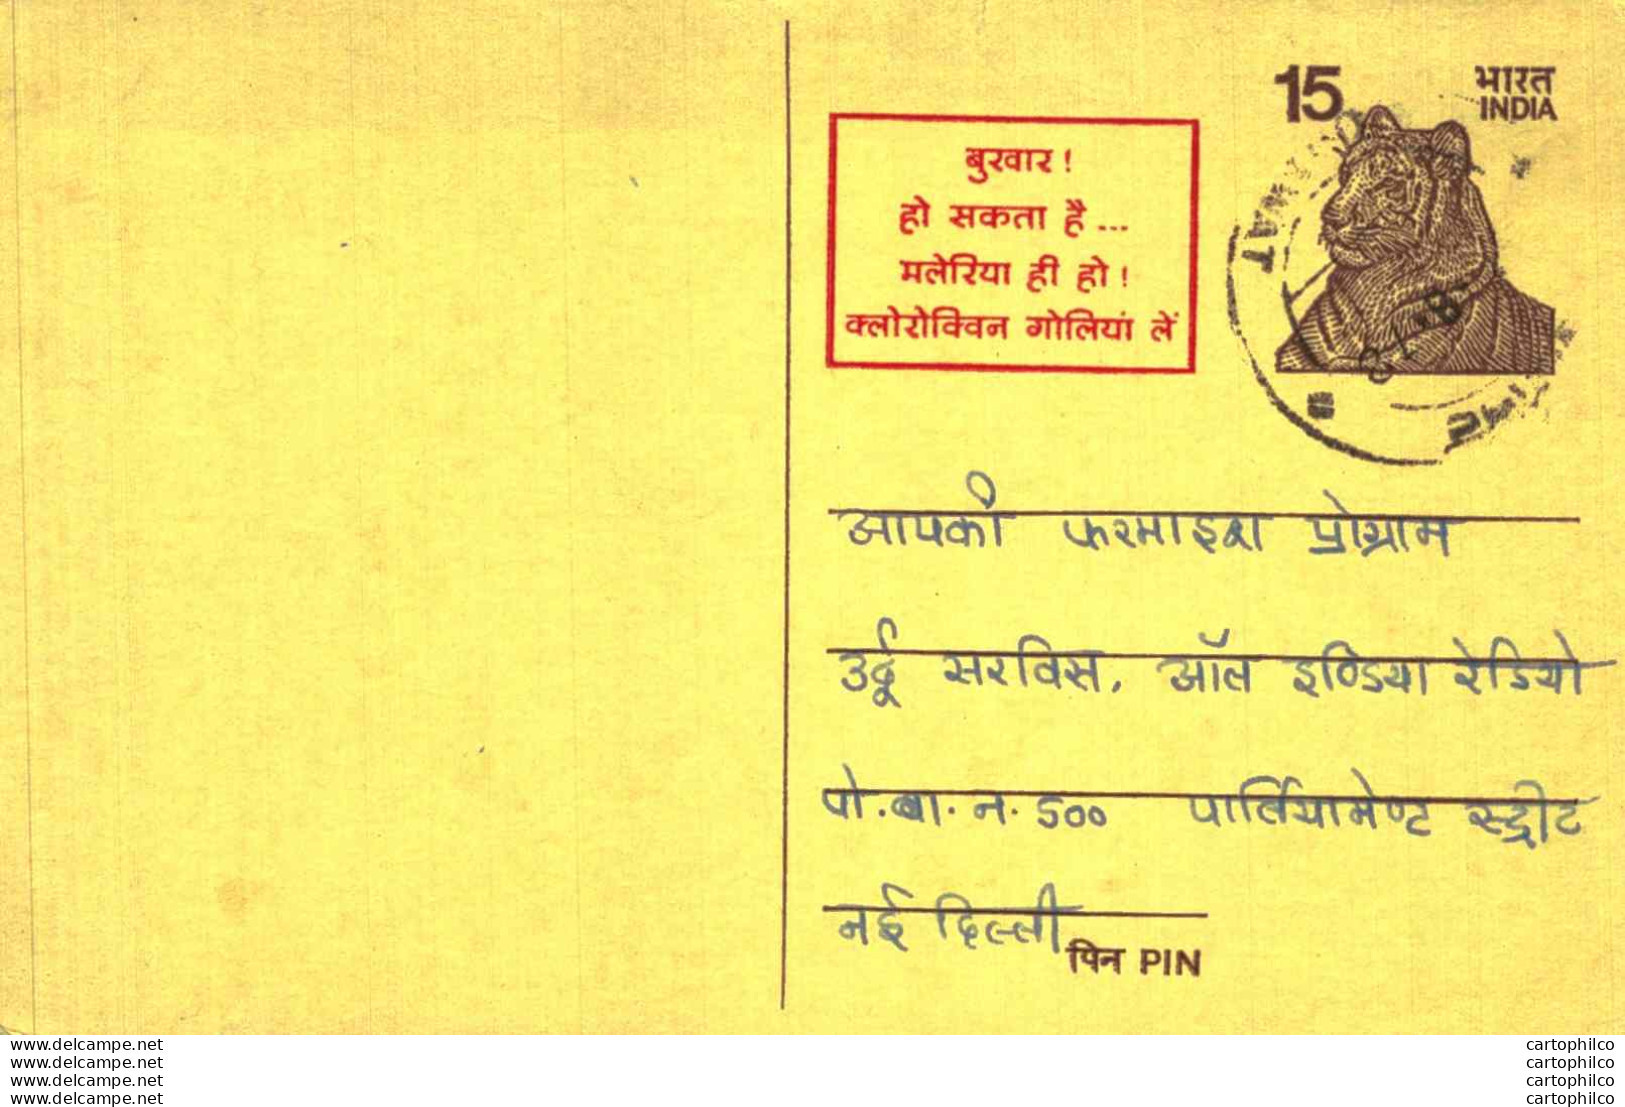 15
भारत
INDIA
बुखार !
हो सकता है ...
मलेरिया ही हो !
क्लोरोक्विन गोलियां लें
आपकी फरमाइश प्रोग्राम
उर्दू सरविस, ऑल इण्डिया रेडियो
पो. बा. न. 500 पार्लियामेण्ट स्ट्रीट
नई दिल्ली
पिन PIN
www.delcampe.net
www.delcampe.net
www.delcampe.net
www.delcampe.net
cartophilco
cartophilco
cartophilco
cartophilco